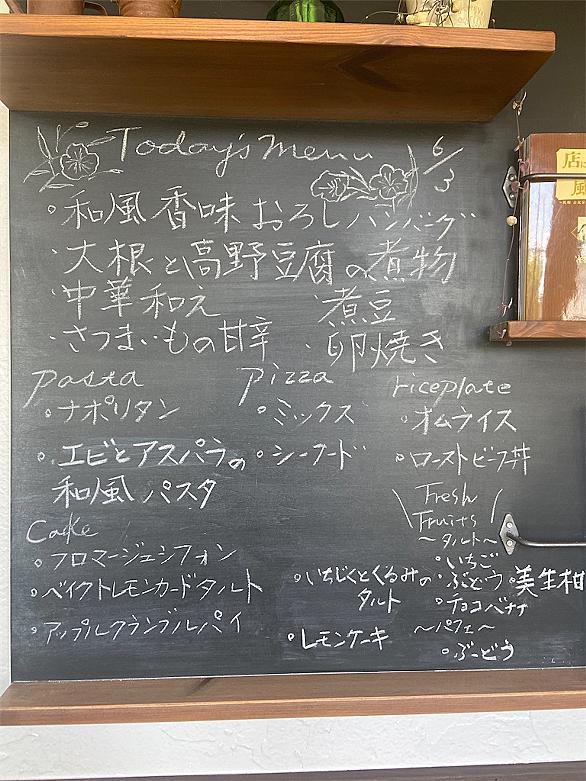 Today's Menu 6/3
・和風香味おろしハンバーグ
・大根と高野豆腐の煮物
・中華和え ・煮豆
・さつまいもの甘辛 ・卵焼き
pasta
・ナポリタン
・エビとアスパラの
和風パスタ
pizza
・ミックス
・シーフード
riceplate
・オムライス
・ローストビーフ丼
Cake
・フロマージュシフォン
・ベイクトレモンカードタルト
・アップルクランブルパイ
・いちじくとくるみの
タルト
・レモンケーキ
Fresh
Fruits
〜タルト〜
・いちご
・ぶどう ・美生柑
・チョコバナナ
〜パフェ〜
・ぶどう
店
風